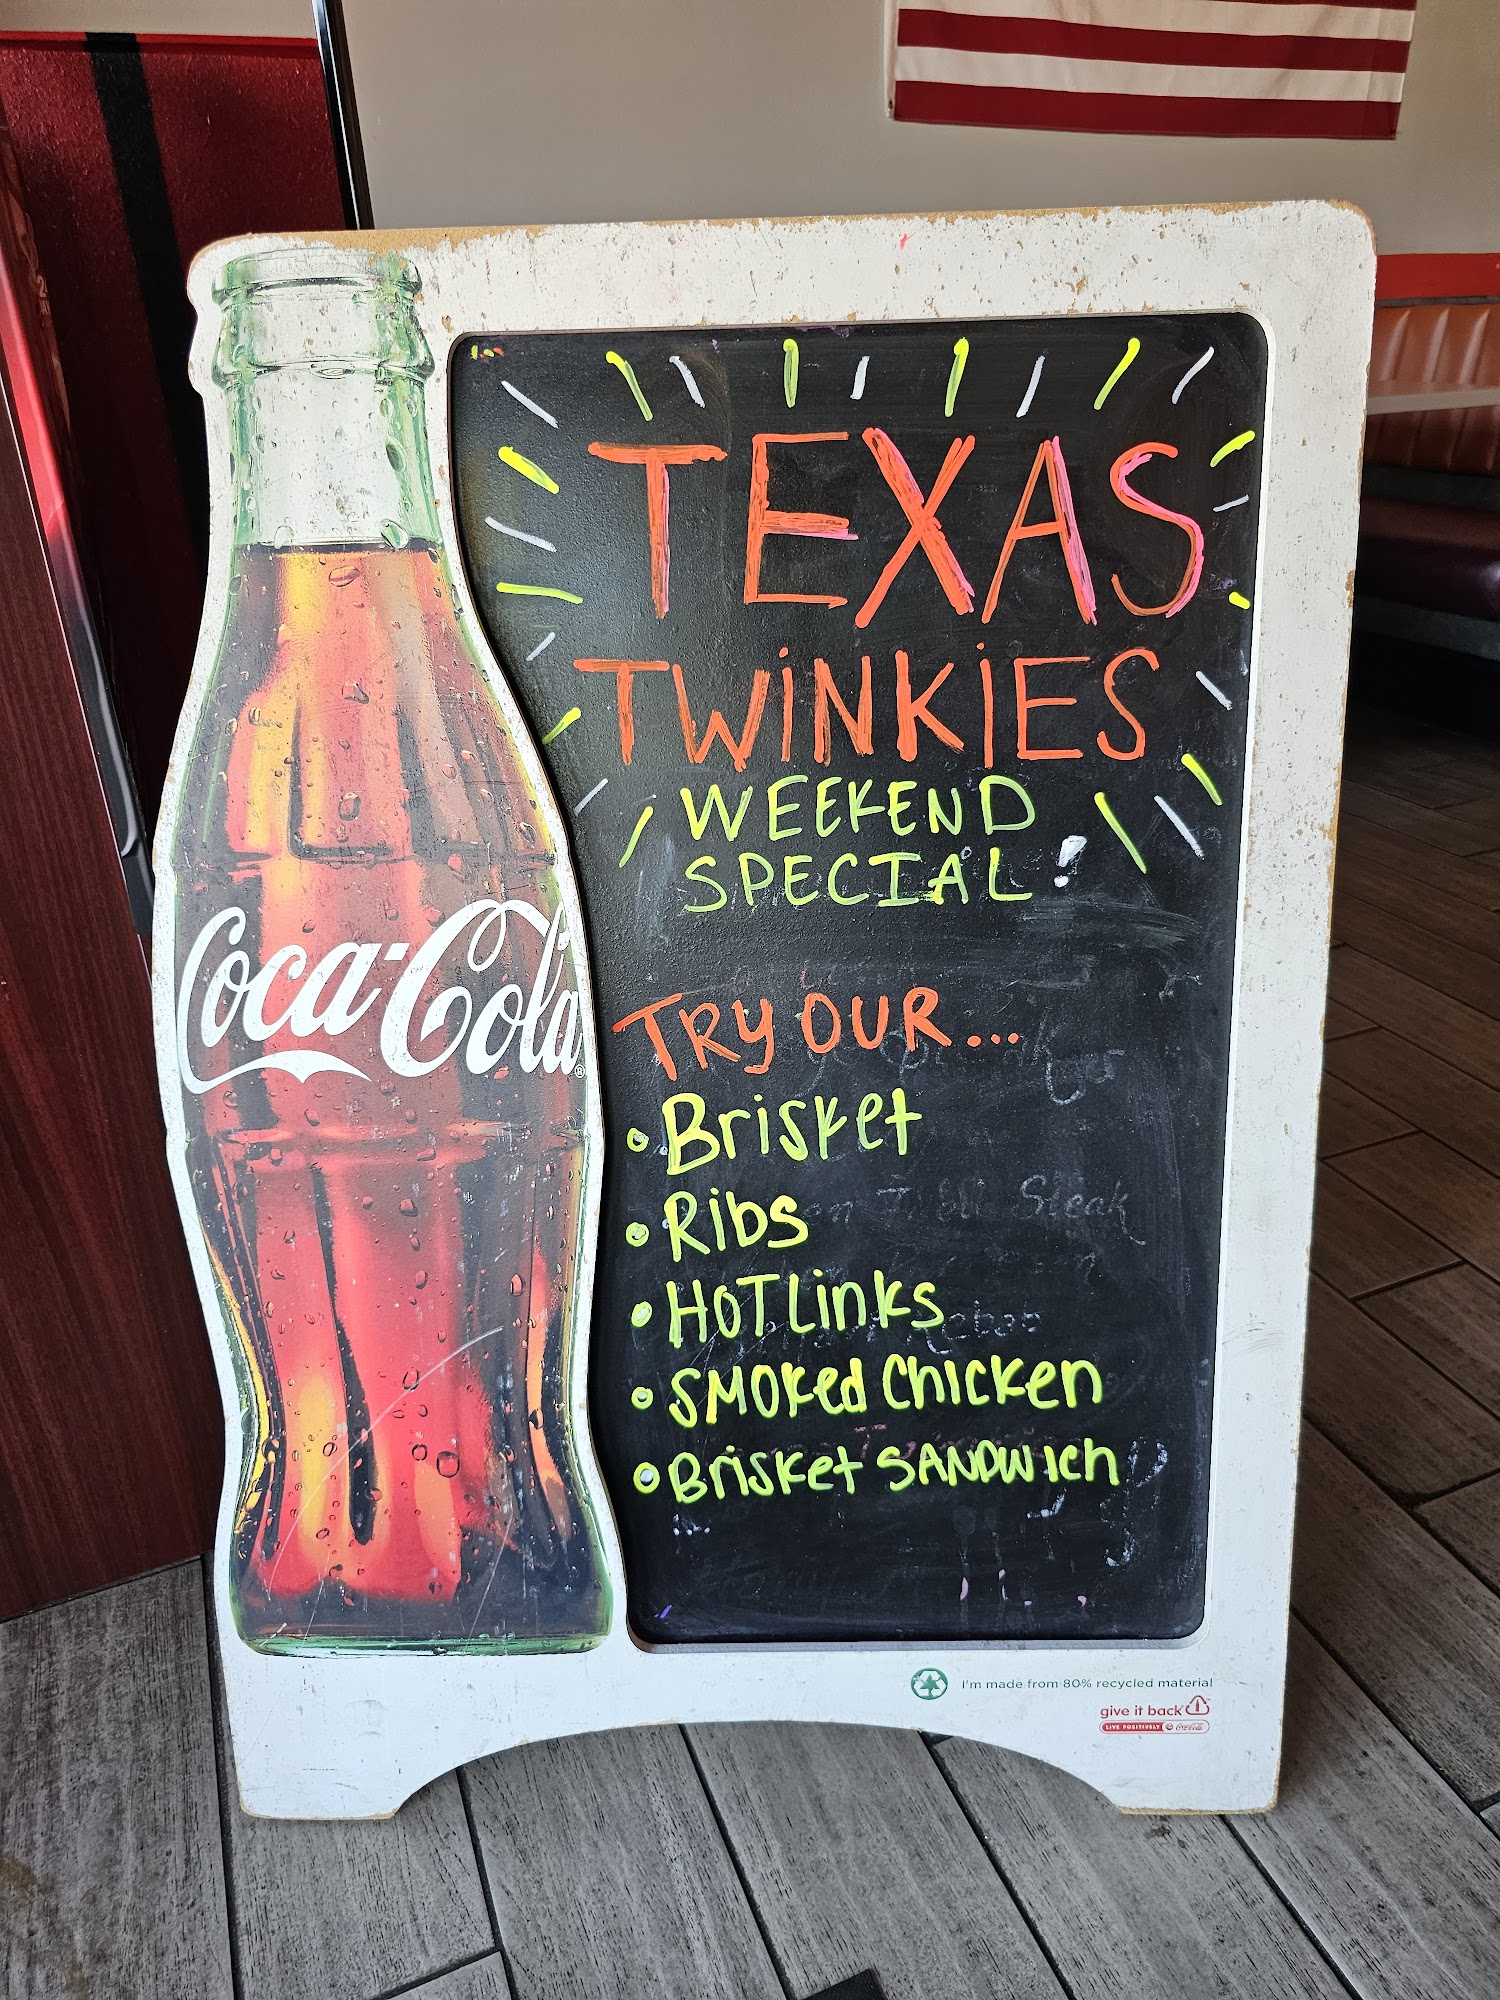 TEXAS
TWiNKiES
WEEKEND
SPECIAL!
Coca-Cola®
TRY OUR...
• Brisket
• Ribs
• HOT Links
• SMOKed Chicken
• Brisket SANDWich
Steak
I'm made from 80% recycled material
give it back
LIVE POSITIVELY Coca-Cola